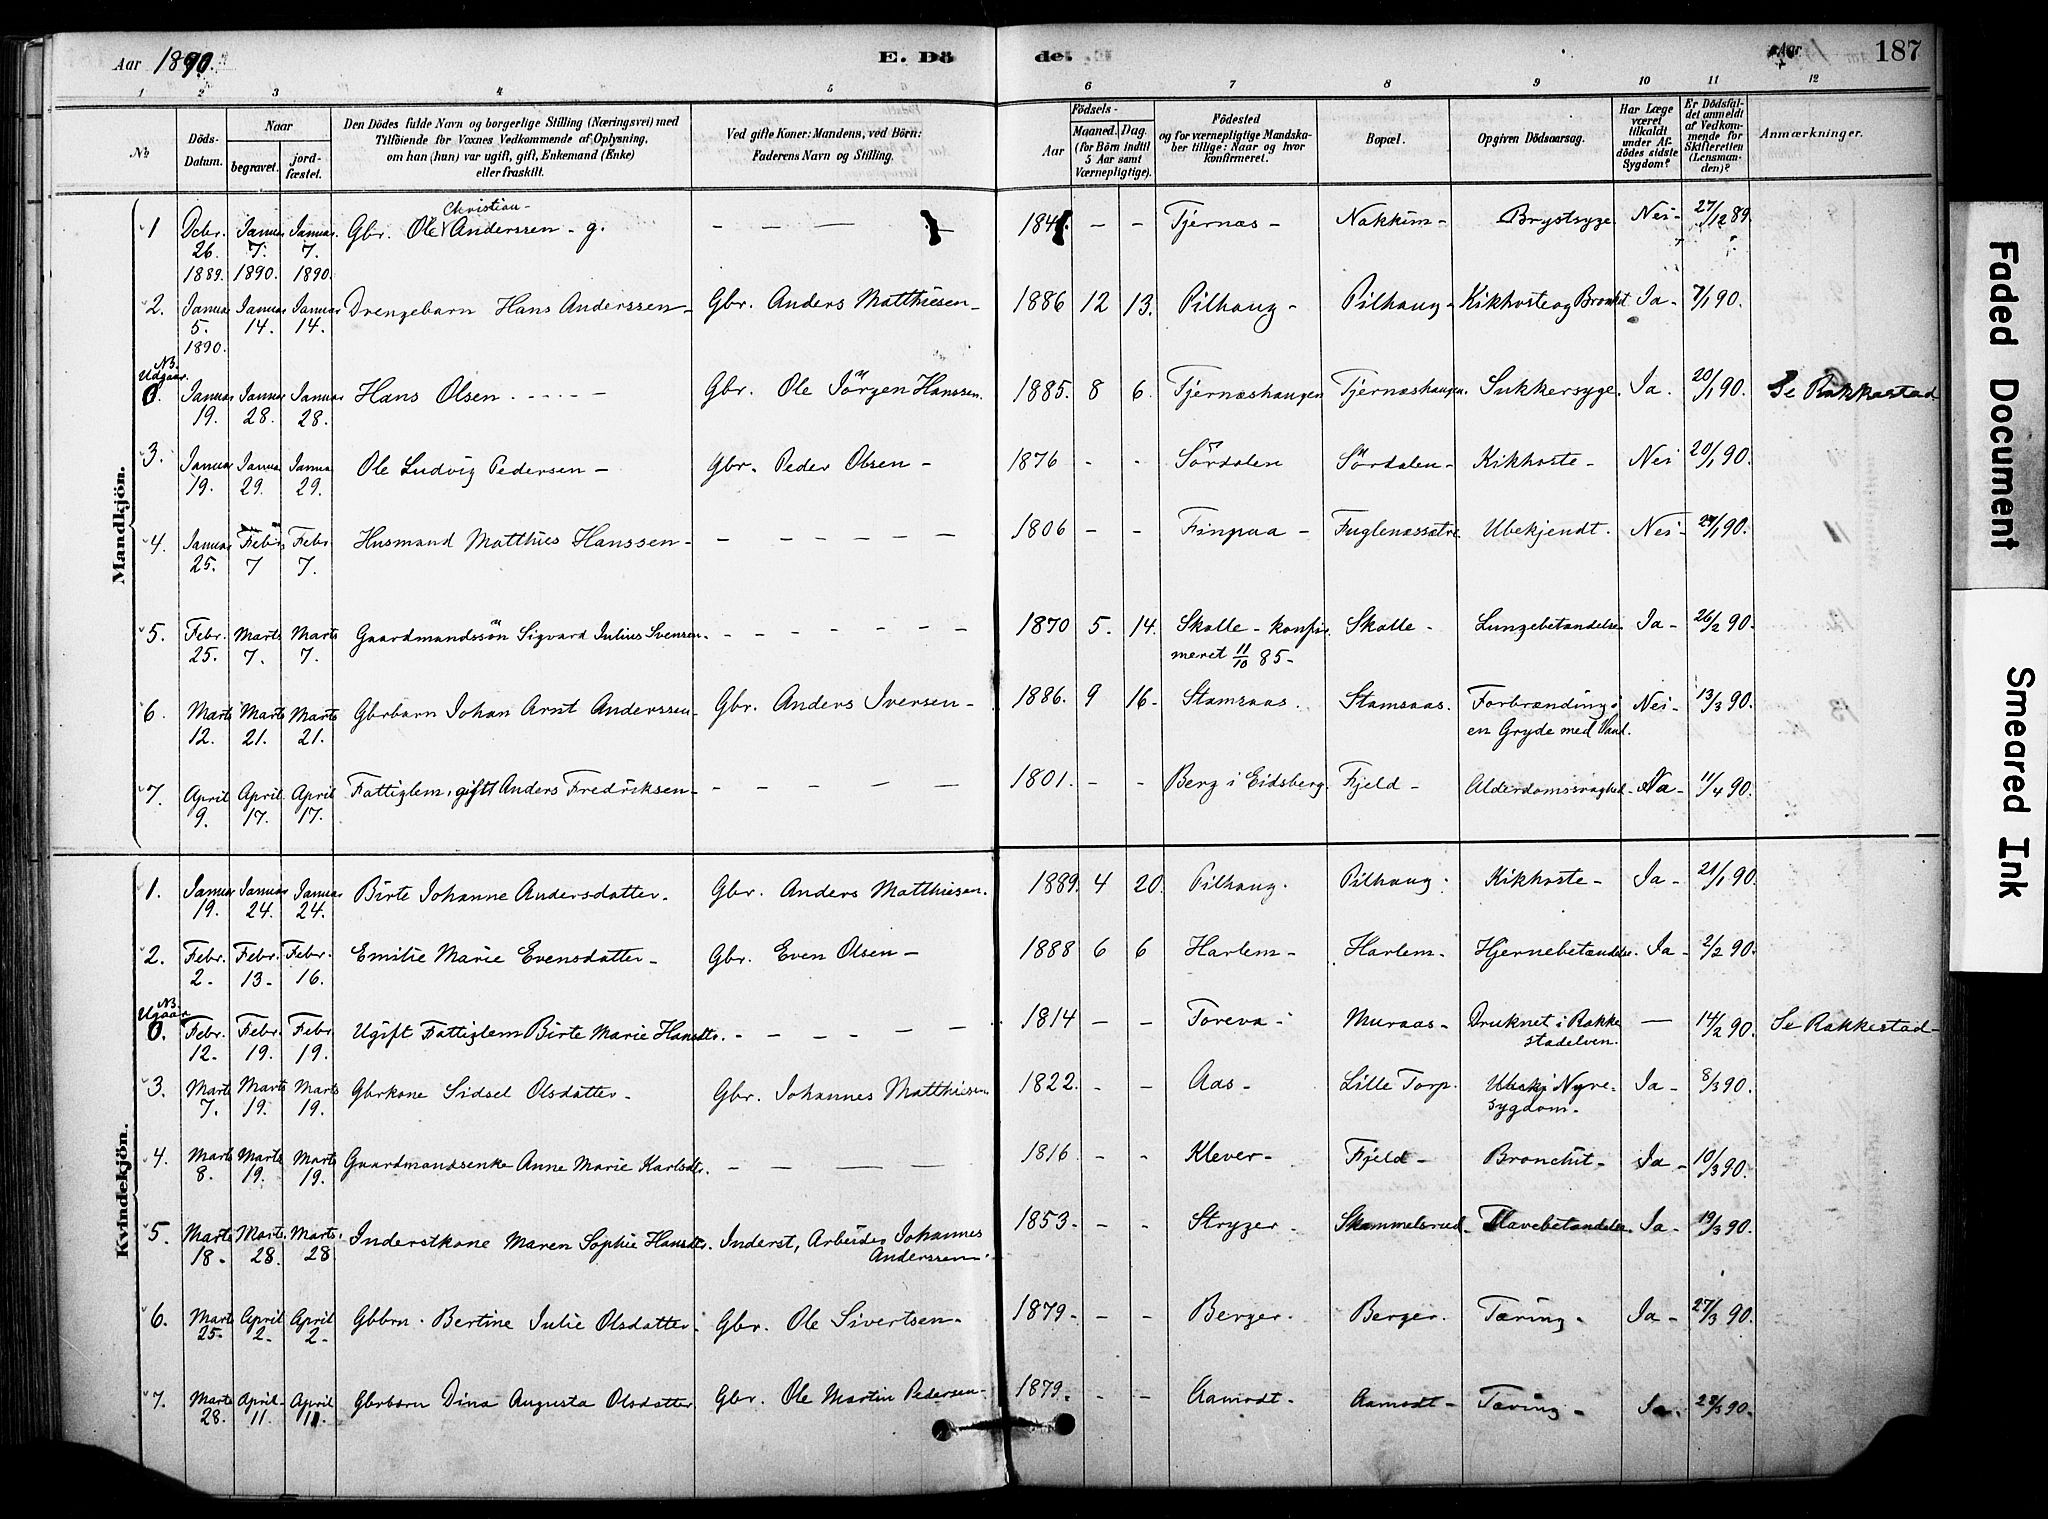 Aar 1890. E. Dö de. Aar 187
1 2 3 4 5 6 7 8 9 10 11 12
№ Döds-Datum. Naar begravet. jordfæstet. Den Dödes fulde Navn og borgerlige Stilling (Næringsvei) med Tilföiende for Voxnes Vedkommende af Oplysning, om han (hun) var ugift, gift, Enkemand (Enke) eller fraskilt. Ved gifte Koner: Mandens, ved Börn: Faderens Navn og Stilling. Födsels- Aar Maaned. Dag. (for Börn indtil 5 Aar samt Værnepligtige). Födested og for værnepligtige Mandskaber tillige: Naar og hvor konfirmeret. Bopæl. Opgiven Dödsaarsag. Har Læge været tilkaldt under Afdödes sidste Sygdom? Er Dödsfaldet anmeldt af Vedkommende for Skifteretten (Lensmanden)? Anmærkninger.
Mandkjön.
1 Debr. 26. 1889. Januar 7. 1890. Januar 7. 1890. Gbr. Ole Christian Anderssen - g. - - - 184 - - Tjernæs - Nakkim - Brystsyge Nei - 27/12 89.
2. Januar 5. 1890. Januar 14. Januar 14. Drengebarn Hans Anderssen - Gbr. Anders Matthiesen - 1886 12 13. Pilhaug - Pilhaug - Kikhoste og Bronkit Ja - 7/1 90.
NB. Udgaar 0. Januar 19. Januar 28. Januar 28. Hans Olsen - - - - Gbr. Ole Jörgen Hanssen. 1885. 8 6. Tjernæshaugen Tjernæshaugen. Sukkersyge. Ja. 20/1 90. Se Rakkestad
3. Januar 19. Januar 29. Januar 29. Ole Ludvig Pedersen - Gbr. Peder Olsen - 1876 - - Sördalen Sördalen - Kikhoste - Nei 20/1 90.
4. Januar 25. Febr. 7 Febr. 7. Husmand Matthies Hanssen - - - - - - - 1806 - - Finpaa - Fuglenæssætre. Ubekjendt. Nei - 29/1 90.
5. Febr. 25. Marts 7. Marts 7. Gaardmandssön Sigvard Julius Svensen. - - - - - - - 1870 5. 14. Skolle - konfirmeret 11/10 85 - Skolle - Lungebetændelse Ja - 26/2 90.
6. Marts 12. Marts 21. Marts 21. Gbrbarn Johan Arnt Anderssen - Gbr. Anders Iversen - 1886. 9 16 - Stamsaas. Stamsaas. Forbrænding i en Gryde med Vand. Nei - 13/3 90.
7. April 9. April 17. April 17. Fattiglem, gift Anders Fredriksen - - - - - - 1801. - - Berg i Eidsberg. Fjeld - Alderdomssvaghed - Na - 11/4 90.
Kvindekjön.
1. Januar 19. Januar 24. Januar 24. Birte Johanne Andersdatter. Gbr. Anders Matthiesen. 1889. 4 20. Pilhaug. Pilhaug. Kikhoste - Ja - 21/1 90.
2. Febr. 2 - Febr. 13 - Febr. 16. Emilie Marie Evensdatter - Gbr. Even Olsen - 1888 6 6 Harlem - Harlem - Hjernebetændelse. Ja - 2/2 90.
NB. Ugaar 0. Febr. 12. Febr. 19. Febr. 19. Ugift Fattiglem Birte Marie Hansdtr. - - - - - 1814 - - Toreva - Muraas - Druknet i Rakkestadelven. - 14/2 90. Se Rakkestad -
3. Marts 7. Marts 19. Marts 19. Gbrkone Sidsel Olsdatter - Gbr. Johannes Matthiesen 1822. - - Aas - Lille Torp. Nyresygdom - Ja - 8/3 90.
4. Marts 8. Marts 19. Marts 19. Gaardmandsenke Anne Marie Karlsdtr. - - - - 1816 - - Klever - Fjeld - Bronchit - Ja - 10/3 90.
5. Marts 18 - Marts. 28. Marts. 28 Inderstkone Maren Sophie Hansdtr. Inderst, Arbeider Johannes Anderssen. 1853. - - Stryger - Skammelsrud - Mavebetændelse. Ja - 19/3 90.
6. Marts 25. April 2 - April 2 - Gbbrn. Bertine Julie Olsdatter. Gbr. Ole Sivertsen - 1879 - - - Berger. Berger. Tæring - Ja - 27/3 90.
7. Marts 28. April 11. April 11. Gbrbarn Dina Augusta Olsdatter Gbr. Ole Martin Pedersen - 1879. - - Aamodt - Aamodt - Tæring - Ja. 28/3 90.
Faded Document
Smeared Ink